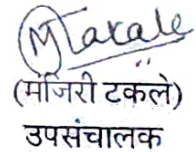 MTakale
(मंजिरी टकले)
उपसंचालक